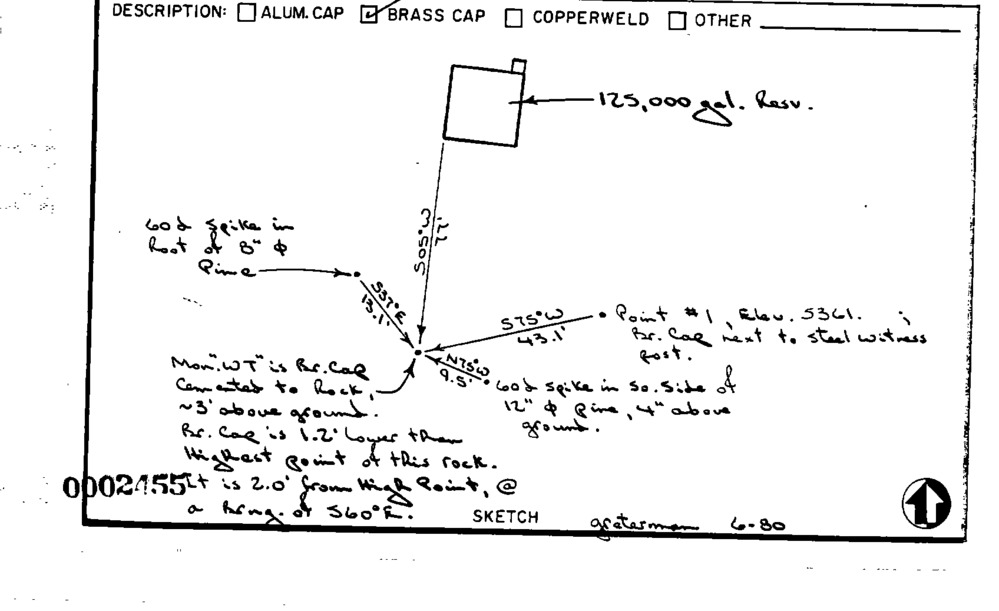 DESCRIPTION: ALUM. CAP BRASS CAP COPPERWELD OTHER
125,000 gal. Resv.
S05°W
77'
60d Spike in
Root of 8" ϕ
Pine
S37°E
13.1'
S75°W
43.1'
Point #1, Elev. 5361. ;
Br. Cap next to steel witness
post.
N75°W
9.5'
60d spike in So. Side of
12" ϕ pine, 4" above
ground.
Mon. "WT" is Br. Cap
Cemented to Rock,
~3' above ground.
Br. Cap is 1.2' lower than
Highest point of this rock.
It is 2.0' from High Point, @
a brng. of S60°E.
0002455
SKETCH
6-80